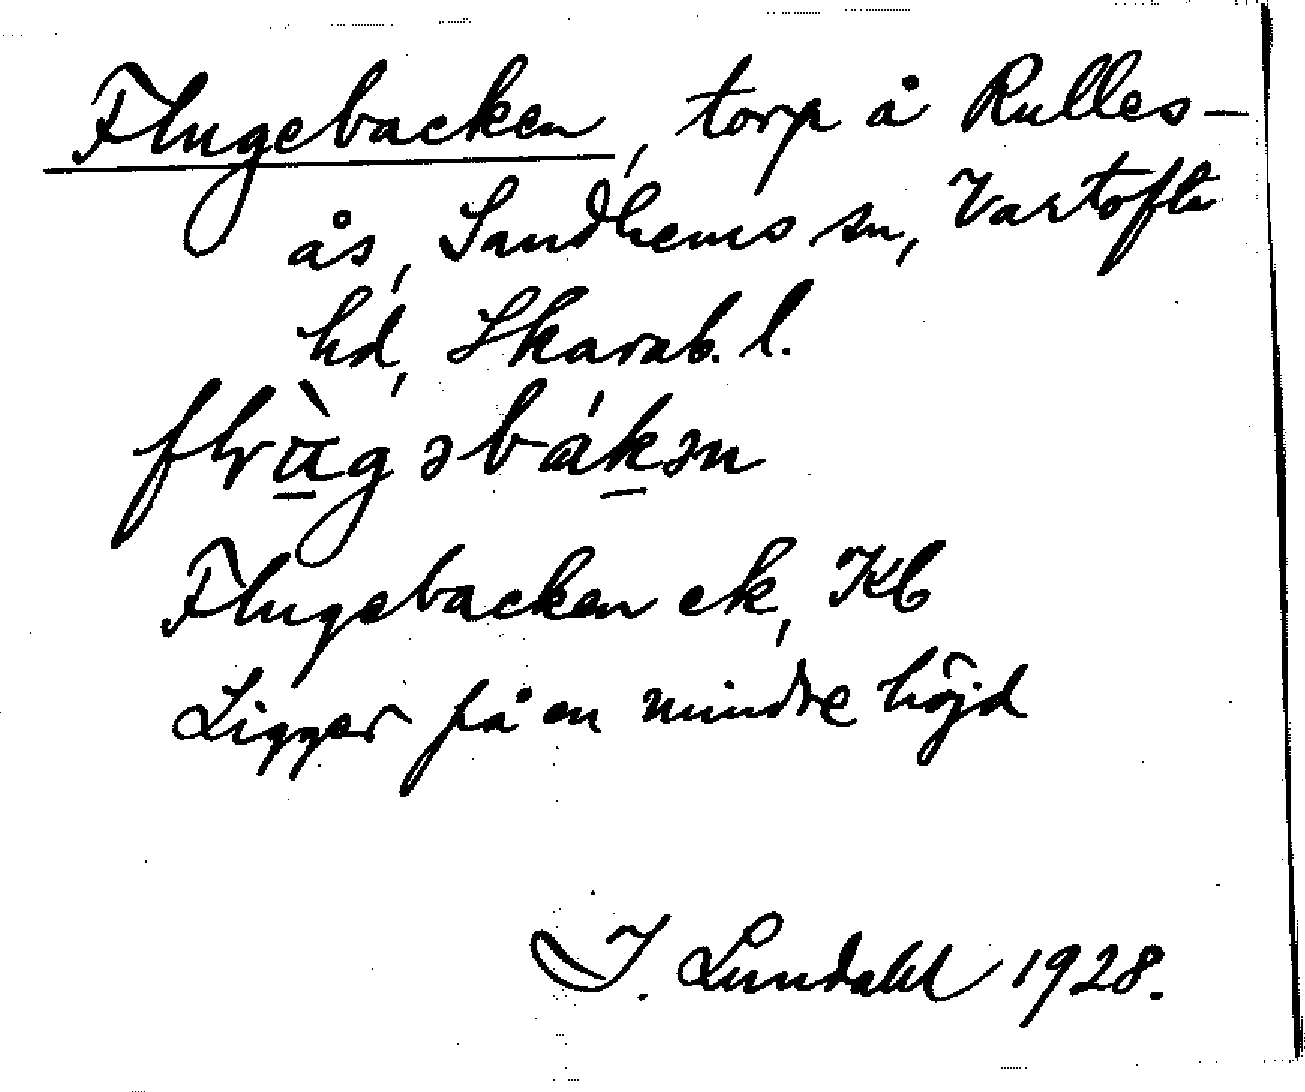 Flugebacken, torp å Rulles-
ås, Sandhems sn, Vartofta
hd, Skarab. l.
flug əbákən
Flugebacken ek, Kb
Ligger på en mindre höjd
I. Lundahl 1928.